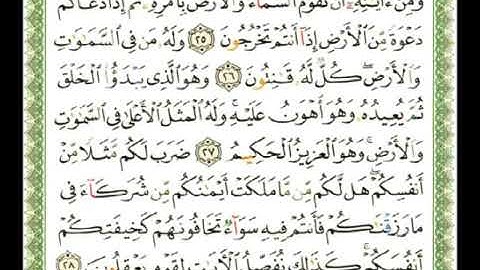 وَمِنْ ءَايَـٰتِهِۦٓ أَن تَقُومَ ٱلسَّمَآءُ وَٱلْأَرْضُ بِأَمْرِهِۦ ثُمَّ إِذَا دَعَاكُمْ
دَعْوَةً مِّنَ ٱلْأَرْضِ إِذَآ أَنتُمْ تَخْرُجُونَ ٢٥ وَلَهُۥ مَن فِى ٱلسَّمَـٰوَٰتِ
وَٱلْأَرْضِ ۖ كُلٌّ لَّهُۥ قَـٰنِتُونَ ٢٦ وَهُوَ ٱلَّذِى يَبْدَؤُا۟ ٱلْخَلْقَ
ثُمَّ يُعِيدُهُۥ وَهُوَ أَهْوَنُ عَلَيْهِ ۚ وَلَهُ ٱلْمَثَلُ ٱلْأَعْلَىٰ فِى ٱلسَّمَـٰوَٰتِ
وَٱلْأَرْضِ ۚ وَهُوَ ٱلْعَزِيزُ ٱلْحَكِيمُ ٢٧ ضَرَبَ لَكُم مَّثَلًا مِّنْ
أَنفُسِكُمْ ۖ هَل لَّكُم مِّن مَّا مَلَكَتْ أَيْمَـٰنُكُم مِّن شُرَكَآءَ فِى
مَا رَزَقْنَـٰكُمْ فَأَنتُمْ فِيهِ سَوَآءٌ تَخَافُونَهُمْ كَخِيفَتِكُمْ
أَنفُسَكُمْ ۚ كَذَٰلِكَ نُفَصِّلُ ٱلْـَٔايَـٰتِ لِقَوْمٍ يَعْقِلُونَ ٢٨